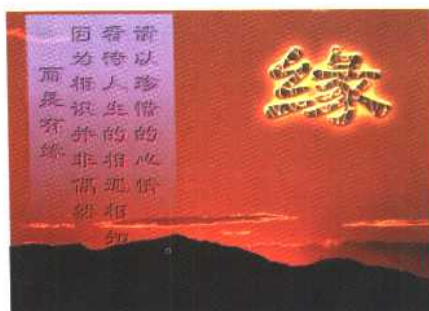 缘
请以珍惜的心情
看待人生的相观相知
因为相识并非偶然
而是有缘